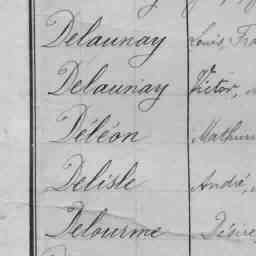 Delaunay Louis, Fra
Delaunay Victor,
Déléon Mathuri
Delisle André,
Delourme Désiré